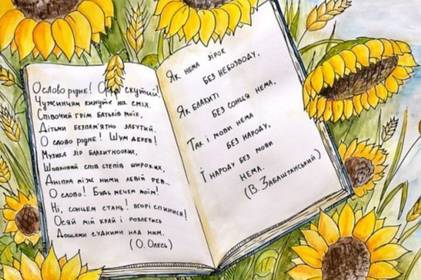 О слово рідне! Орле скутий!
Чужинцям кинуте на сміх.
Співочий грім батьків моїх,
Дітьми безпам'ятно забутий.
О слово рідне! Шум дерев!
Музика зір блакитнооких,
Шовковий спів степів широких,
Дніпра між ними левій рев...
О слово! Будь мечем моїм!
Ні, сонцем стань! вгорі спинися!
Осяй мій край і розлетись
Дощами судними над ним.
(О. Олесь)
Як нема зірок
без небозводу,
Як блакиті
без сонця нема,
Так і мови нема
без народу,
І народу без мови
нема.
(В. Забаштанський)